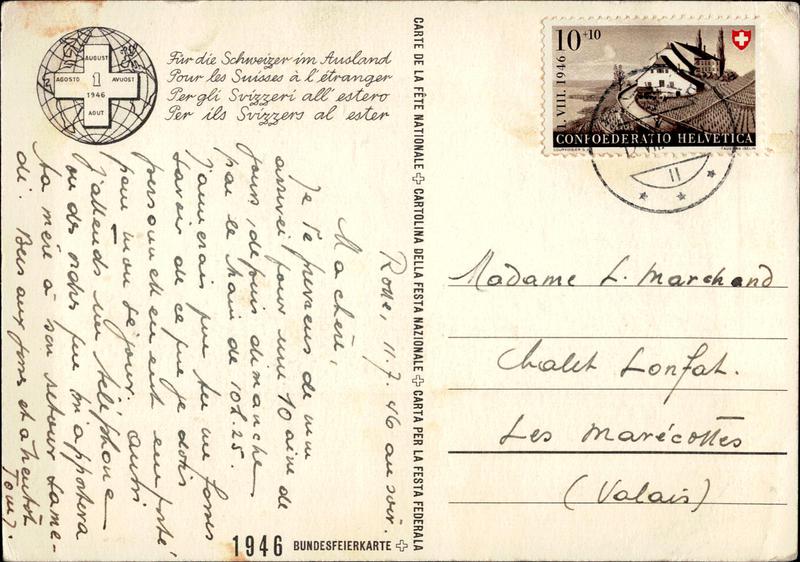 AUGUST
AGOSTO 1 AVUOST
1946
AOUT
Für die Schweizer im Ausland
Pour les Suisses à l'étranger
Per gli Svizzeri all'estero
Per ils Svizzers al ester
CARTE DE LA FÊTE NATIONALE CARTOLINA DELLA FESTA NAZIONALE CARTA PER LA FESTA FEDERALA
1946 BUNDESFEIERKARTE
10+10
1. VIII. 1946
CONFOEDERATIO HELVETICA
11
11.7.46 au soir.
Ma chère,
Je te préviens de mon
arrivée pour une 10aine de
jours, depuis dimanche
par le train de 10h.25.
J'aimerais que tu me
savoir ce que je dois
en est
pour mon séjour.
J'attends un téléphone
ou des que m'apportera
ta mère à son retour same-
di. Bons aux et à bientôt
Madame L. Marchand
Chalet Lonfat.
Les Marécottes
(Valais)